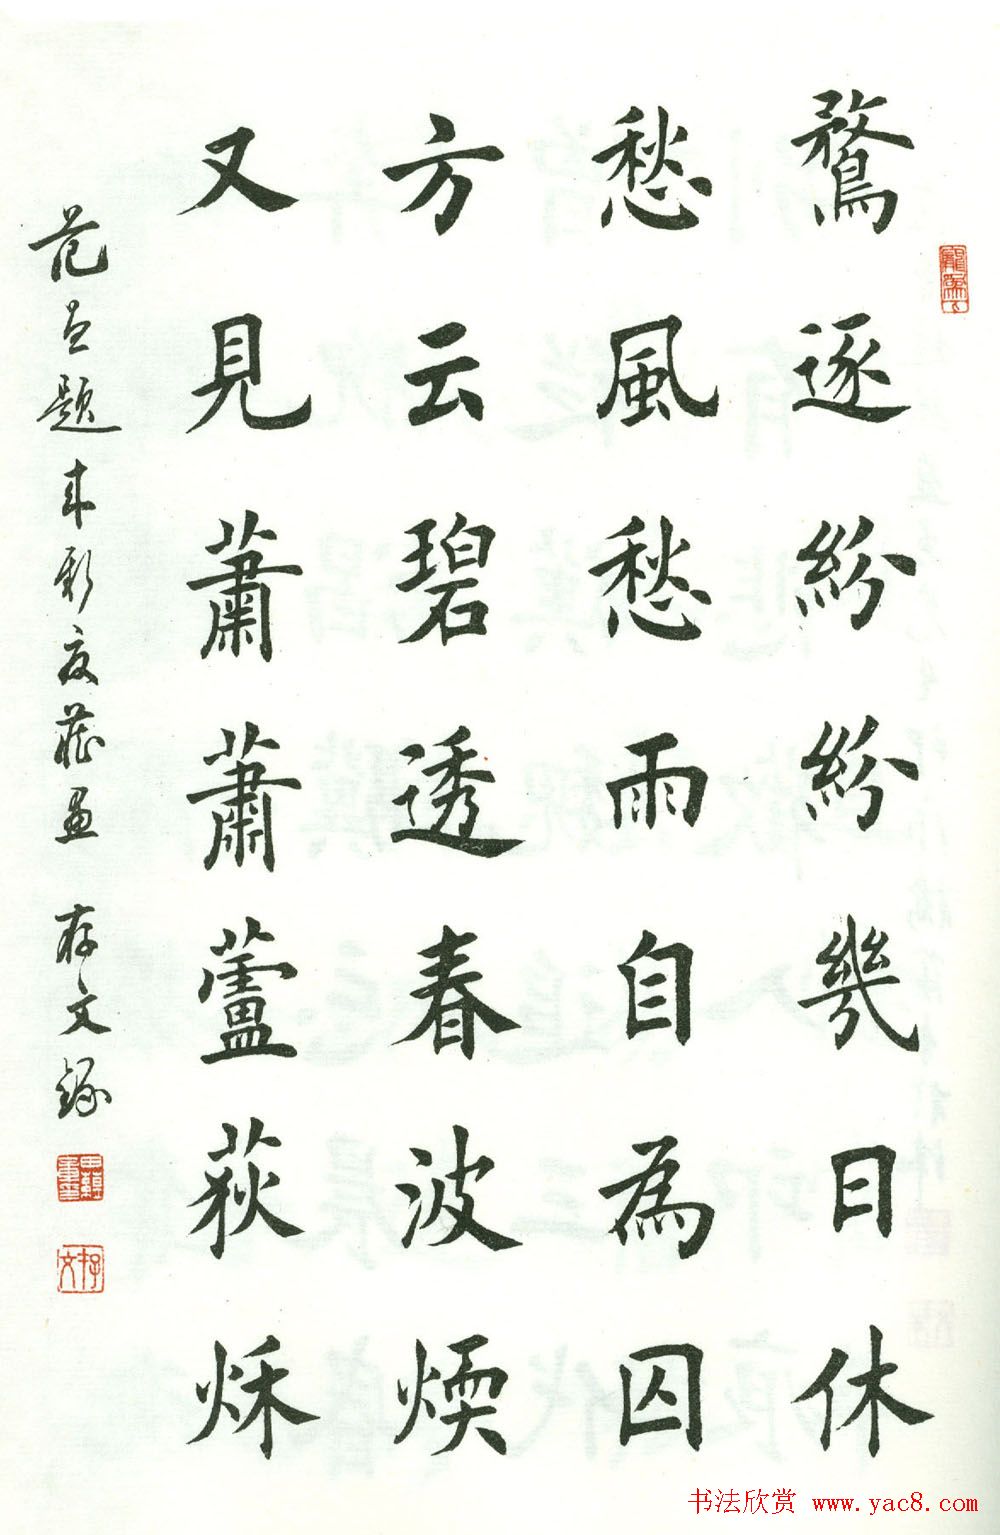 鶩逐紛紛幾日休
愁風愁雨自為囚
方云碧透春波煗
又見蕭蕭蘆荻秌
范題畫 存文錄
存文
书法欣赏 www.yac8.com